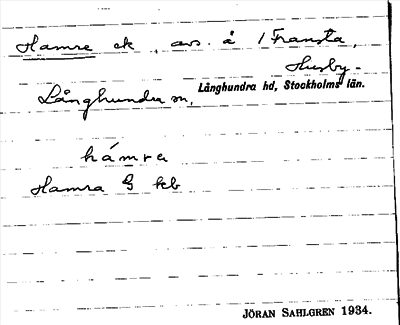 Hamre ek, avs. å 1 Fransta,
Husby-
Långhundra sn,
Långhundra hd, Stockholms län.
hámra
Hamra G kb
JÖRAN SAHLGREN 1934.